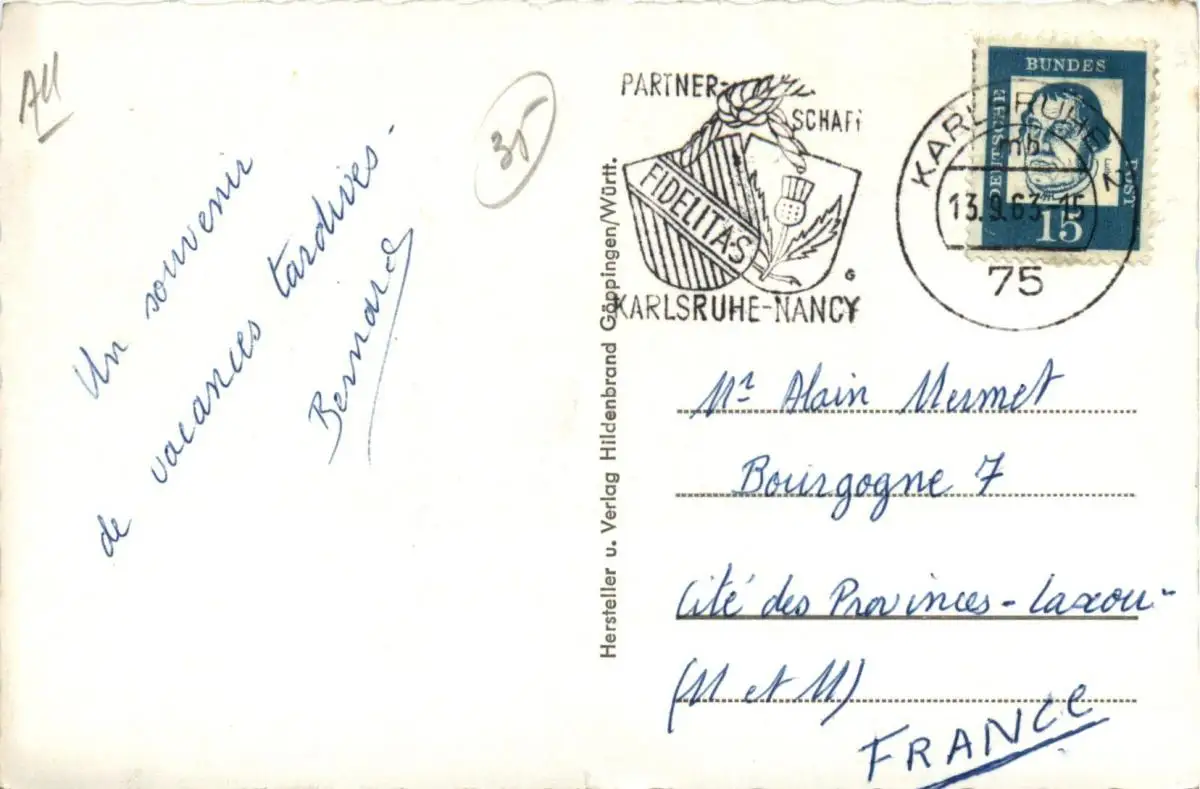 All
35
Un souvenir
de vacances tardives.
Bernard
Hersteller u. Verlag Hildenbrand Göppingen/Württ.
PARTNER-
SCHAFT
FIDELITAS
G
KARLSRUHE-NANCY
KARLSRUHE 2
mb
13.9.63-15
75
DEUTSCHE
BUNDES
POST
15
Mr Alain Mermet
Bourgogne 7
Cité des Provinces - Laxou -
(M et M)
FRANCE